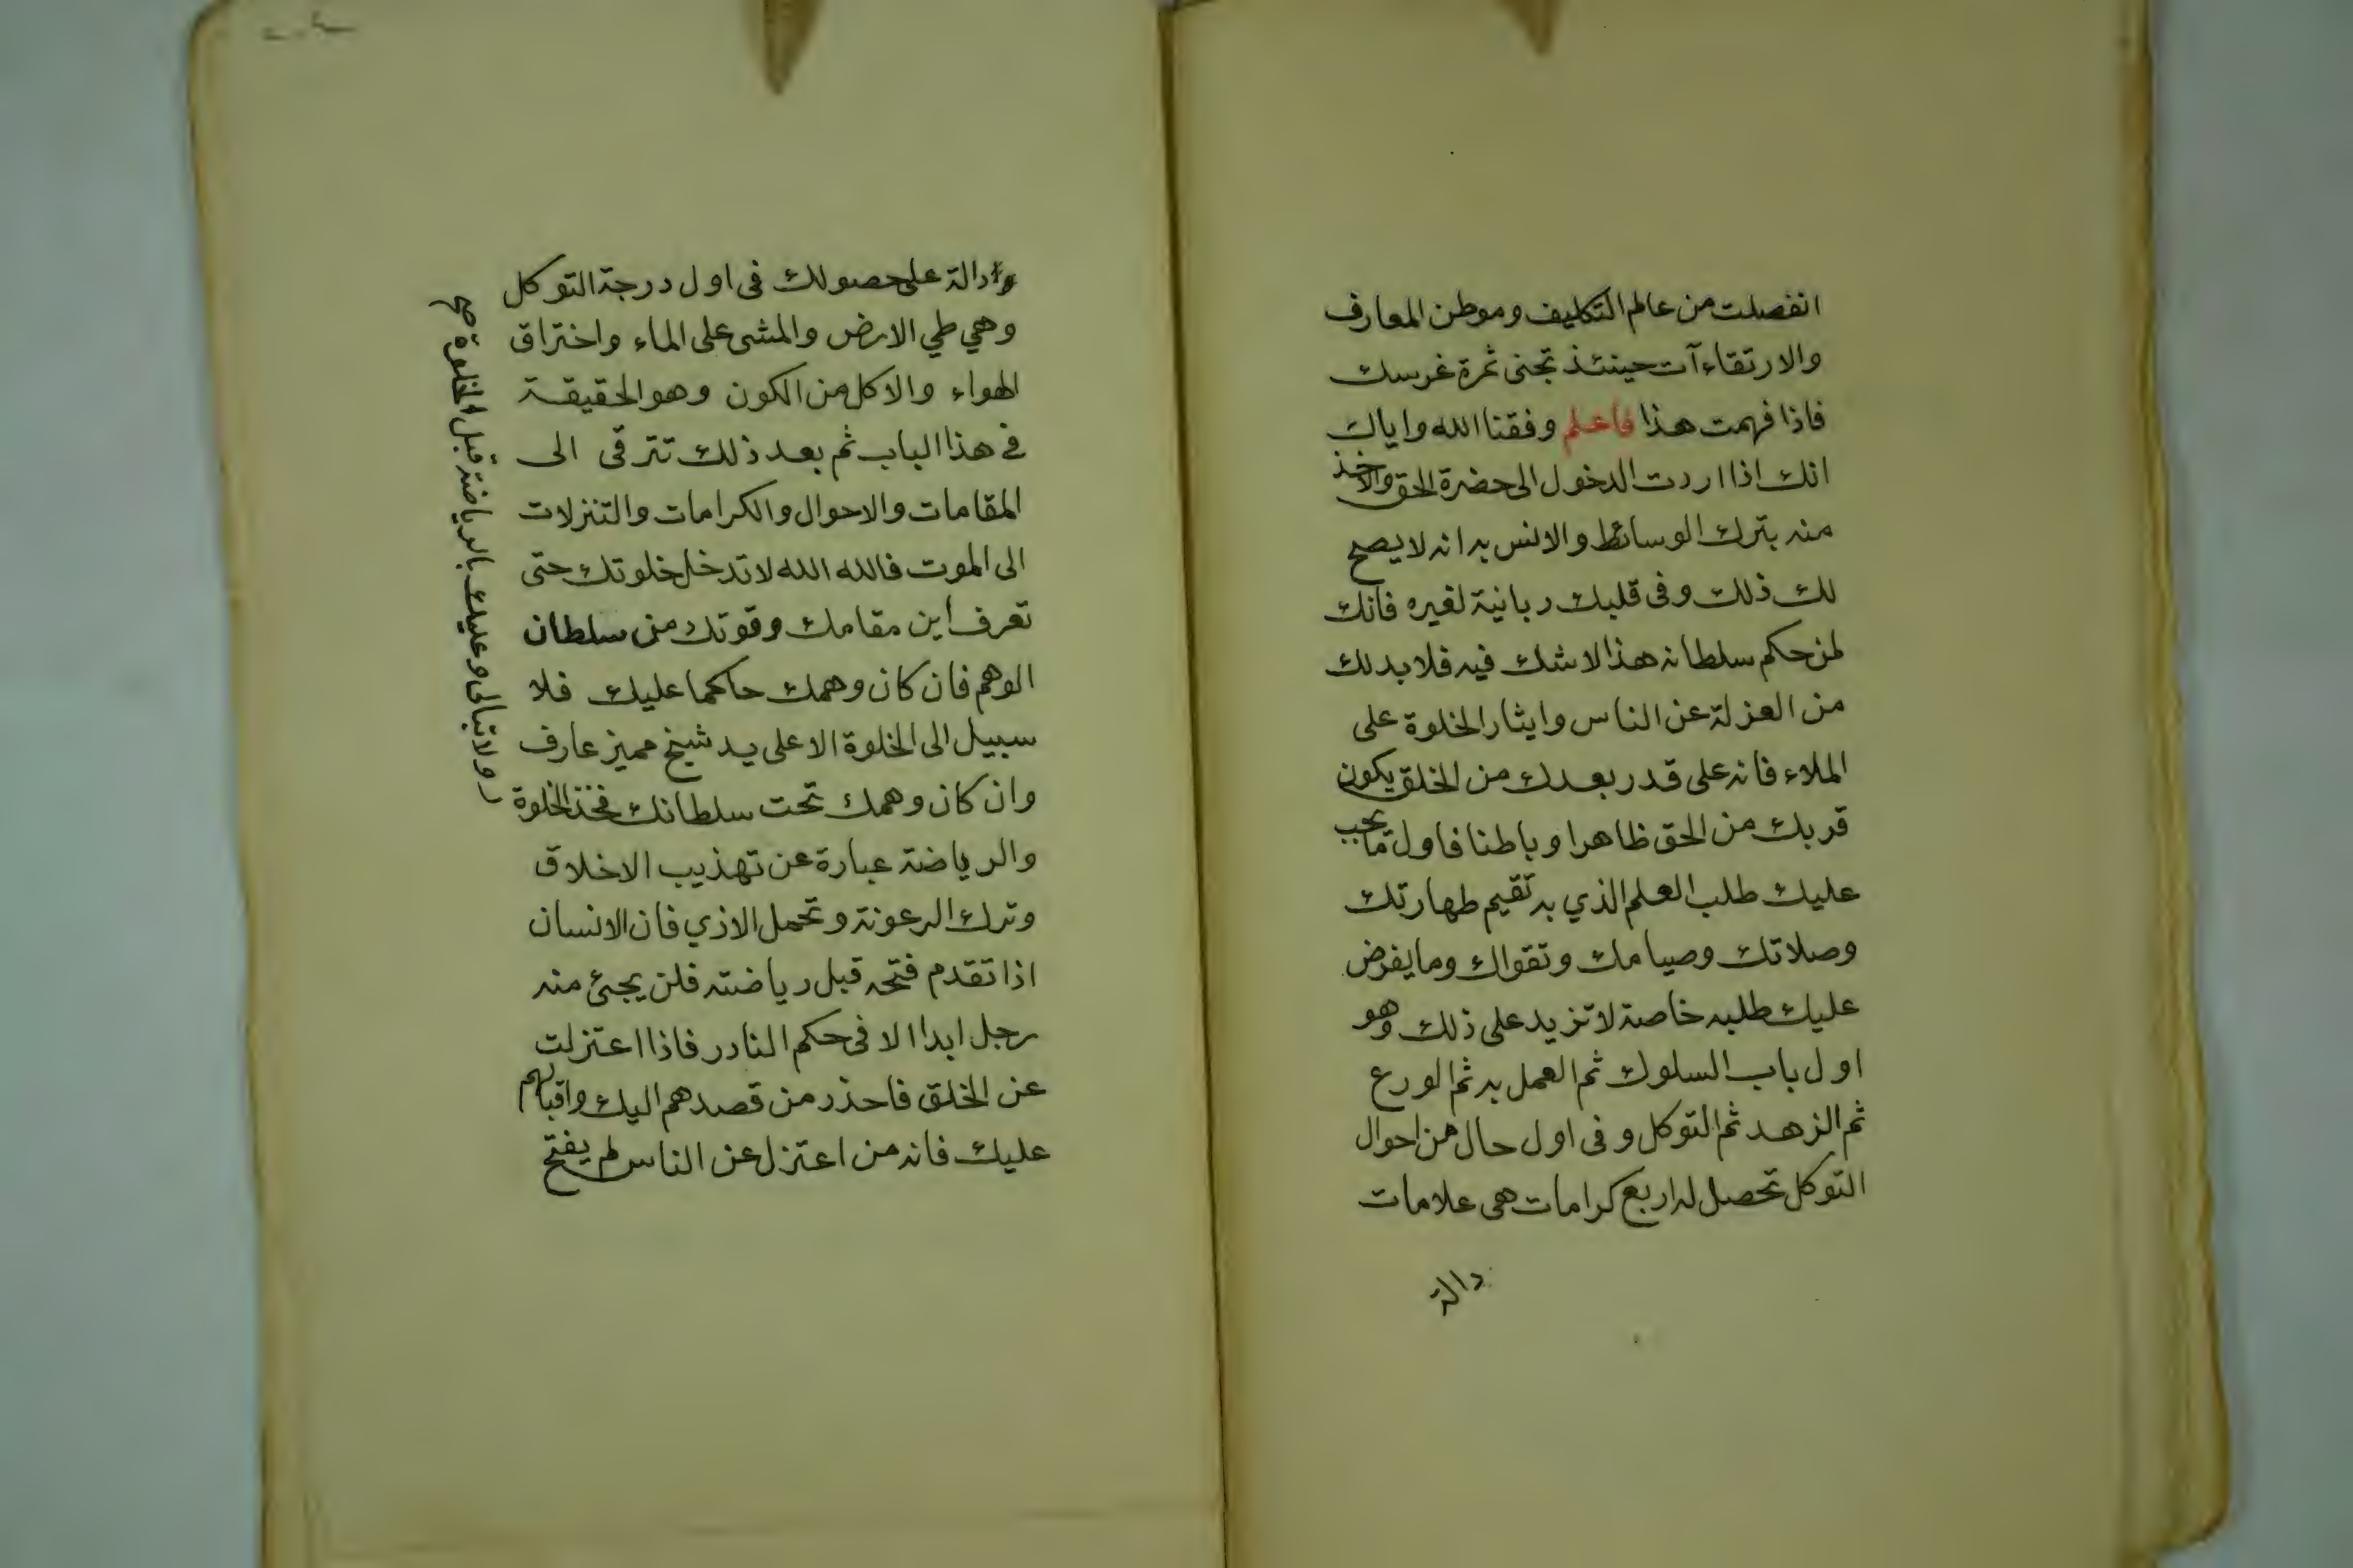 انفصلت من عالم التكليف وموطن المعارف
والارتقاءآت حينئذ تجنى ثمرة غرسك
فاذا فهمت هذا فاعلم وفقنا الله واياك
انك اذا اردت الدخول الى حضرة الحق والاخذ
منه بترك الوسائط والانس به انه لا يصح
لك ذلك وفى قلبك ربانية لغيره فانك
لمن حكم سلطانه هذا لا شك فيه فلا بد لك
من العزلة عن الناس وايثار الخلوة على
الملاء فانه على قدر بعدك من الخلق يكون
قربك من الحق ظاهرا وباطنا فاول ما يجب
عليك طلب العلم الذي به تقيم طهارتك
وصلاتك وصيامك وتقواك وما يفرض
عليك طلبه خاصة لا تزيد على ذلك وهو
اول باب السلوك ثم العمل به ثم الورع
ثم الزهد ثم التوكل وفى اول حال من احوال
التوكل تحصل له اربع كرامات هى علامات
دالة
دالة على حصولك فى اول درجة التوكل
وهي طي الارض والمشى على الماء واختراق
الهواء والاكل من الكون وهو الحقيقة
في هذا الباب ثم بعد ذلك تترقى الى
المقامات والاحوال والكرامات والتنزلات
الى الموت فالله الله لا تدخل خلوتك حتى
تعرف اين مقامك وقوتك من سلطان
الوهم فان كان وهمك حاكما عليك فلا
سبيل الى الخلوة الا على يد شيخ مميز عارف
وان كان وهمك تحت سلطانك فخذ الخلوة
والرياضة عبارة عن تهذيب الاخلاق
وترك الرعونة وتحمل الاذي فان الانسان
اذا تقدم فتحه قبل رياضته فلن يجئ منه
رجل ابدا الا فى حكم النادر فاذا اعتزلت
عن الخلق فاحذر من قصدهم اليك واقبالهم
عليك فانه من اعتزل عن الناس لم يفتح
ولا تبالى وعليك بالرياضة قبل الخلوة صح